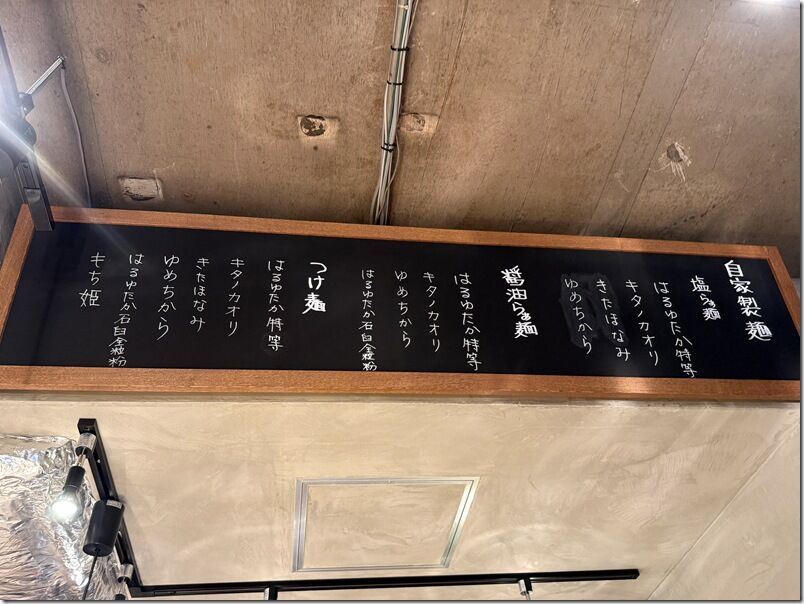 自家製麺
塩らぁ麺
はるゆたか特等
キタノカオリ
きたほなみ
ゆめちから
醤油らぁ麺
はるゆたか特等
キタノカオリ
ゆめちから
はるゆたか石臼全粒粉
つけ麺
はるゆたか特等
キタノカオリ
きたほなみ
ゆめちから
はるゆたか石臼全粒粉
もち姫